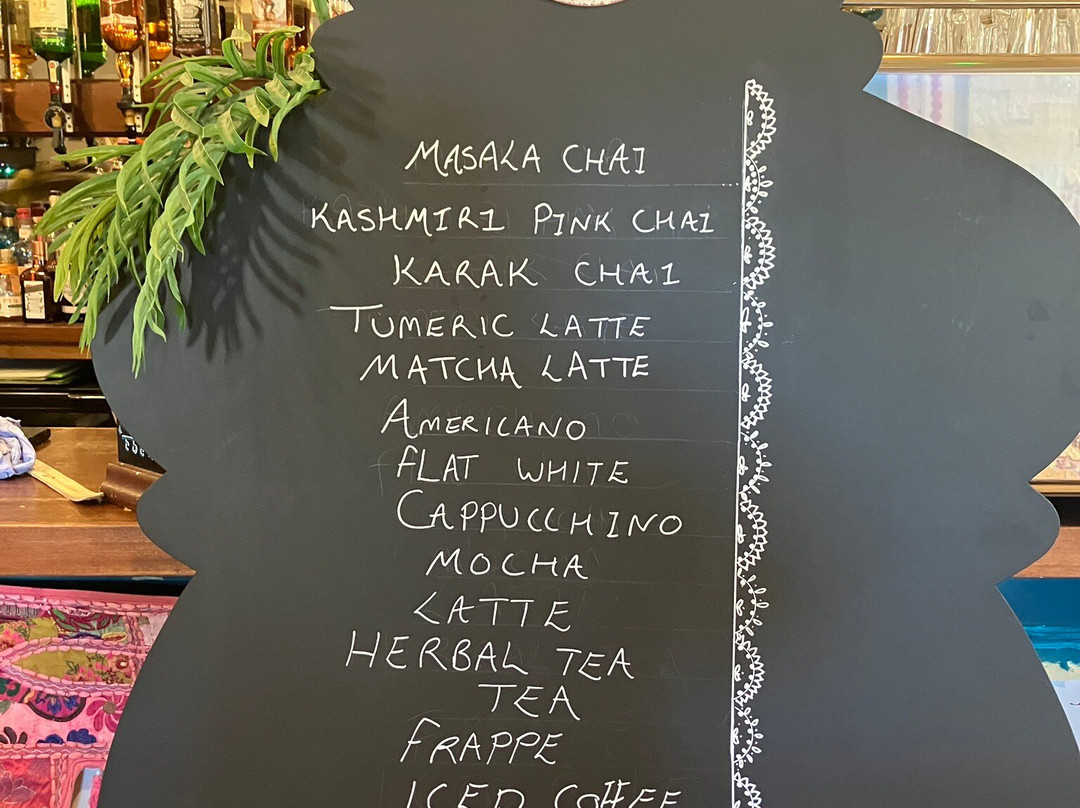 MASALA CHAI
KASHMIRI PINK CHAI
KARAK CHAI
TUMERIC LATTE
MATCHA LATTE
AMERICANO
FLAT WHITE
CAPPUCCHINO
MOCHA
LATTE
HERBAL TEA
TEA
FRAPPE
ICED COFFEE